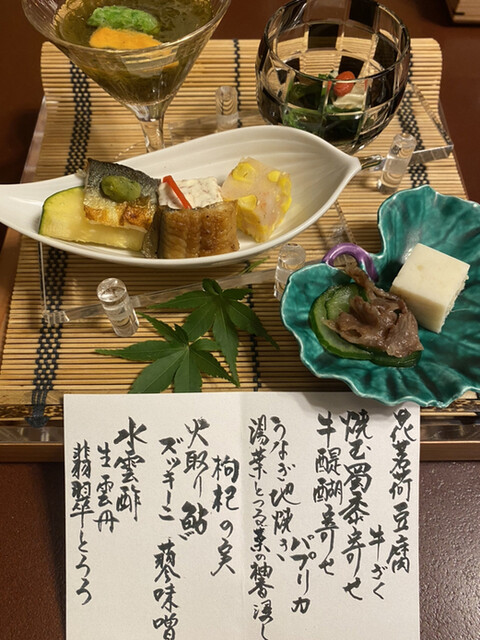 花茗荷豆腐
牛ざく
焼玉蜀黍寄せ
牛醍醐寄せ
パプリカ
うなぎ地焼き
湯葉とつる菜の浸し
枸杞の実
火取り鮎
ズッキーニ 蓼味噌
水雲酢
生雲丹
翡翠とろろ